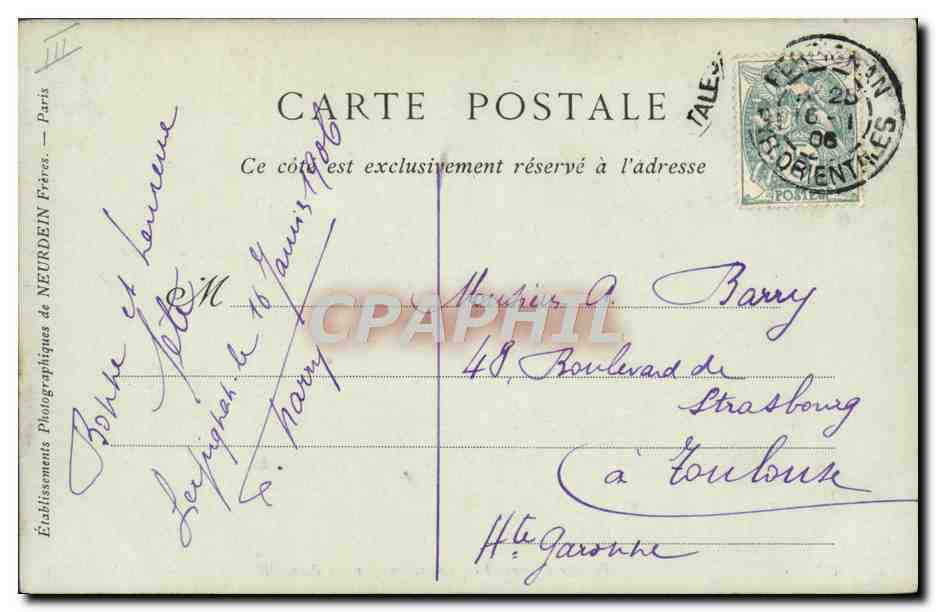 III
CARTE POSTALE
Ce côté est exclusivement réservé à l'adresse
TALES
PERPIGNAN
25
16 - 1
06
PYR. ORIENTALES
POSTES
Établissements Photographiques de NEURDEIN Frères. — Paris
Bonne et heureuse
fête
Perpignan le 16 Janvier 1906
Barry
M
Monsieur A. Barry
48, Boulevard de
Strasbourg
à Toulouse
Hte Garonne
CPAPHIL